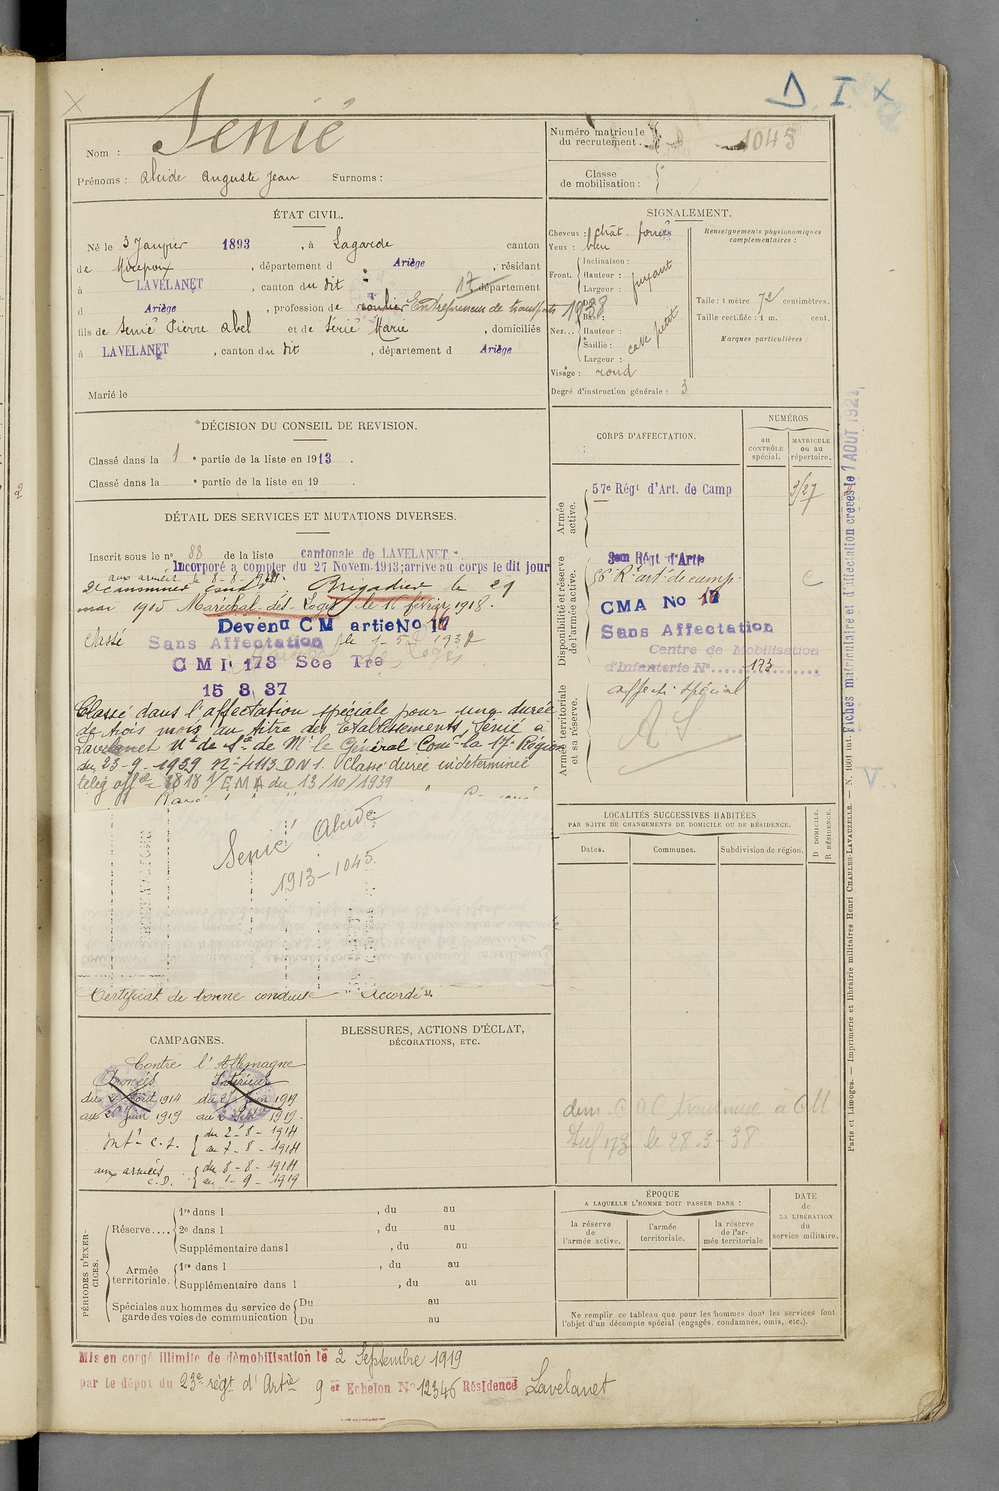 D. I. X
Nom : Senié
Prénoms : Alcide Auguste Jean Surnoms :
Numéro matricule du recrutement. 1045
Classe de mobilisation :
ÉTAT CIVIL.
Né le 3 Janvier 1893, à Lagarde canton
de Mirepoix, département d Ariège, résidant
à LAVELANET, canton du dit 17 département
d Ariège, profession de roulier Entrepreneur de transports 1938
fils de Senié Pierre Abel et de Serié Marie, domiciliés
à LAVELANET, canton du dit, département d Ariège
Marié le
SIGNALEMENT.
Cheveux : chât. foncés
Yeux : bleu
Front. Inclinaison :
Hauteur : fuyant
Largeur :
Nez... Dos :
Base :
Hauteur :
Saillie :
Largeur :
Visage : rond
Degré d'instruction générale : 3
Renseignements physionomiques complémentaires :
Taille : 1 mètre 72 centimètres.
Taille rectifiée : 1 m. cent.
Marques particulières :
DÉCISION DU CONSEIL DE REVISION.
Classé dans la 1e partie de la liste en 1913.
Classé dans la e partie de la liste en 19 .
DÉTAIL DES SERVICES ET MUTATIONS DIVERSES.
Inscrit sous le n° 88 de la liste cantonale de LAVELANET
Incorporé à compter du 27 Novem. 1913; arrivé au corps le dit jour
aux armées le 8-8-1914.
2e canonnier cond. Brigadier le 21
mai 1915 Maréchal-des-Logis le 16 février 1918.
Devenu CM artie No 17
Classé Sans Affectation le 1-5-1932
CMI 173 Sce Tre
15 3 37
Classé dans l'affectation spéciale pour une durée
de trois mois au titre des Etablissements Senié à
Lavelanet Nte de Sce de Mr le Général Comt la 17e Région
du 23-9-1939 N° 4113 DN1. Classé durée indéterminée
teleg offel 1818 1/EMA du 13/10/1939
Senié Alcide
1913-1045
Certificat de bonne conduite Accordé.
CORPS D'AFFECTATION.
NUMÉROS
AU CONTRÔLE spécial.
MATRICULE ou au répertoire.
Armée active.
57e Régt d'Art. de Camp 3/27
Disponibilité et réserve de l'armée active.
3em Régt d'Artie
56e Rt art. de camp. C
CMA No 17
Sans Affectation
Centre de Mobilisation
d'Infanterie N° 173
Armée territoriale et sa réserve.
Affecté Spécial
AS
LOCALITÉS SUCCESSIVES HABITÉES
PAR SUITE DE CHANGEMENTS DE DOMICILE OU DE RÉSIDENCE.
Dates. Communes. Subdivision de région. D DOMICILE. R RÉSIDENCE.
à CM
Inf 173 le 28-3-38
CAMPAGNES.
Contre l'Allemagne
Armées Intérieur
du 2 Août 1914 du 21 Juin 1919
au 20 Juin 1919 au 2 Sept 1919.
Int. C.S. du 2-8-1914
au 7-8-1914
aux armées C.D. du 8-8-1914
au 1-9-1919
BLESSURES, ACTIONS D'ÉCLAT, DÉCORATIONS, ETC.
PÉRIODES D'EXERCICES.
Réserve.... 1re dans l , du au
2e dans l , du au
Supplémentaire dans l , du au
Armée territoriale. 1re dans l , du au
Supplémentaire dans l , du au
Spéciales aux hommes du service de garde des voies de communication Du au
Du au
ÉPOQUE
A LAQUELLE L'HOMME DOIT PASSER DANS :
la réserve de l'armée active.
l'armée territoriale.
la réserve de l'armée territoriale
DATE de LA LIBÉRATION du service militaire.
Ne remplir ce tableau que pour les hommes dont les services font l'objet d'un décompte spécial (engagés, condamnés, omis, etc.).
Mis en congé illimité de démobilisation le 2 Septembre 1919
par le dépôt du 23e régt d'Artie 9 er Echelon N° 12346 Résidence Lavelanet
Fiches matriculaire et d'affectation créées le 1 AOUT 1921
Paris et Limoges. — Imprimerie et librairie militaires Henri CHARLES-LAVAUZELLE. — N. 1001 int.
V.